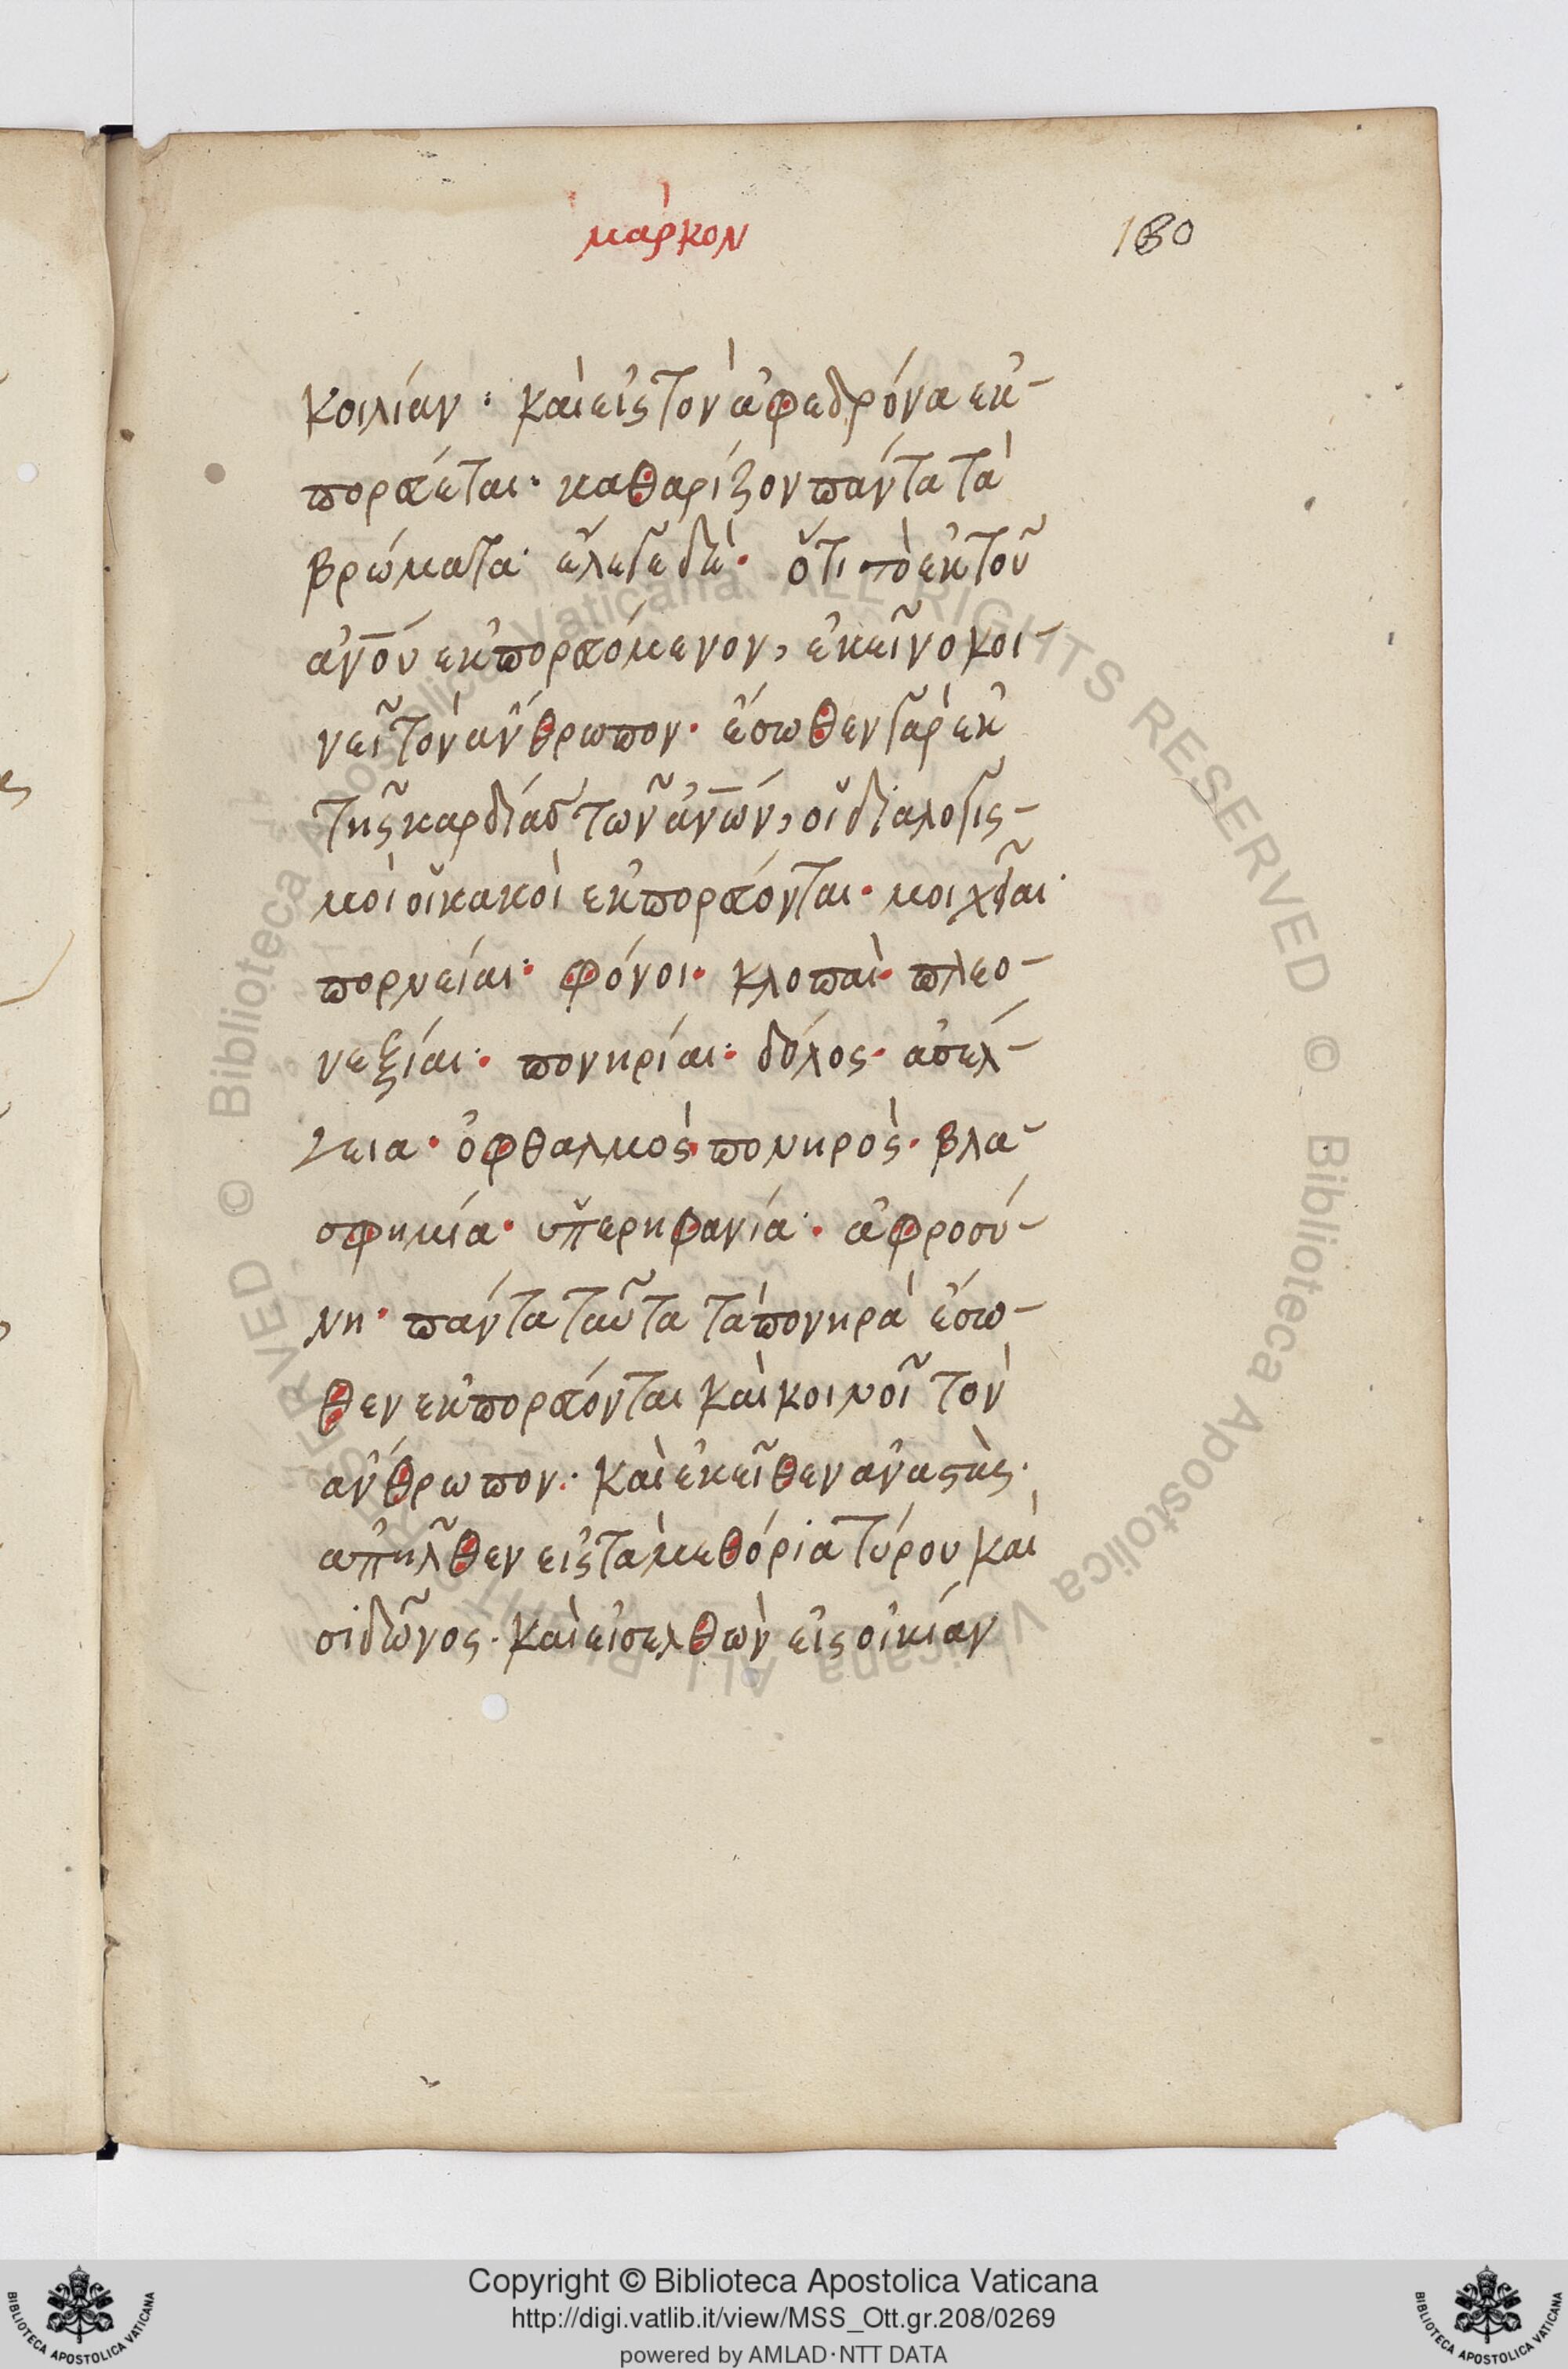 μάρκον
180
κοιλίαν· καὶ εἰς τὸν ἀφεδρόνα ἐκ-
πορεύεται· καθαρίζον πάντα τὰ
βρώματα· ἔλεγε δὲ· ὅτι τὸ ἐκ τοῦ
ἀν̅ου ἐκπορευόμενον, ἐκεῖνο κοι-
νεῖ τὸν ἄνθρωπον· ἔσωθεν γὰρ ἐκ
τῆς καρδίας τῶν ἀν̅ων, οἱ διαλογις-
μοὶ οἱ κακοὶ ἐκπορεύονται· μοιχεῖαι·
πορνείαι· φόνοι· κλοπαὶ· πλεο-
νεξίαι· πονηρίαι· δόλος· ἀσέλ-
γεια· ὀφθαλμὸς πονηρὸς· βλα-
σφημία· ὑπερηφανία· ἀφροσύ-
νη· πάντα ταῦτα τὰ πονηρὰ ἔσω-
θεν ἐκπορεύονται καὶ κοινοῖ τὸν
ἄνθρωπον· καὶ ἐκεῖθεν ἀναστὰς·
ἀπῆλθεν εἰς τὰ μεθόρια τύρου καὶ
σιδῶνος· καὶ εἰσελθὼν εἰς οἰκίαν
© Biblioteca Apostolica Vaticana ALL RIGHTS RESERVED © Biblioteca Apostolica Vaticana ALL RIGHTS RESERVED
Copyright © Biblioteca Apostolica Vaticana
http://digi.vatlib.it/view/MSS_Ott.gr.208/0269
powered by AMLAD·NTT DATA
BIBLIOTECA APOSTOLICA VATICANA
BIBLIOTECA APOSTOLICA VATICANA